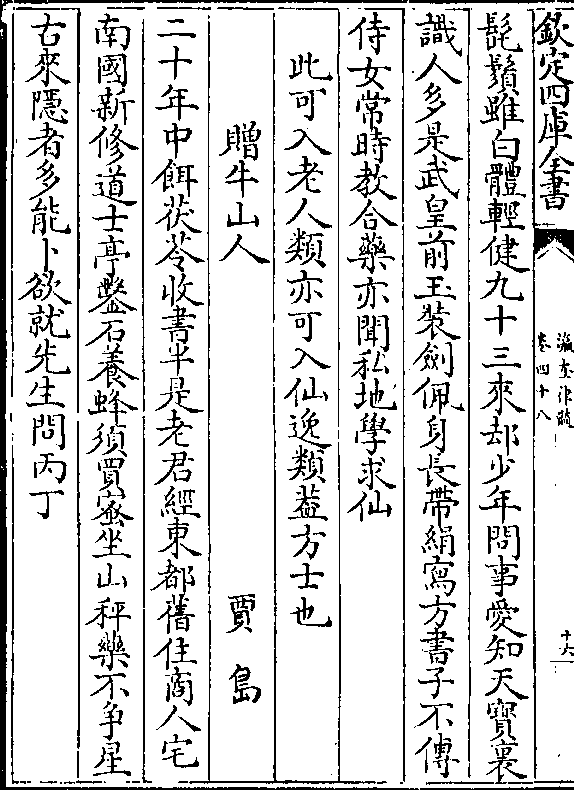 欽定四庫全書
瀛奎律髓
卷四十八
十六
髭鬚雖白體輕健九十三來却少年問事愛知天寶裏
識人多是武皇前玉裝劍佩身長帶絹寫方書子不傳
侍女常時教合藥亦聞私地學求仙
此可入老人類亦可入仙逸類蓋方士也
贈牛山人
賈島
二十年中餌茯苓收書半是老君經東都舊住商人宅
南國新修道士亭鑿石養蜂須買蜜坐山秤藥不争星
古來隱者多能卜欲就先生問丙丁